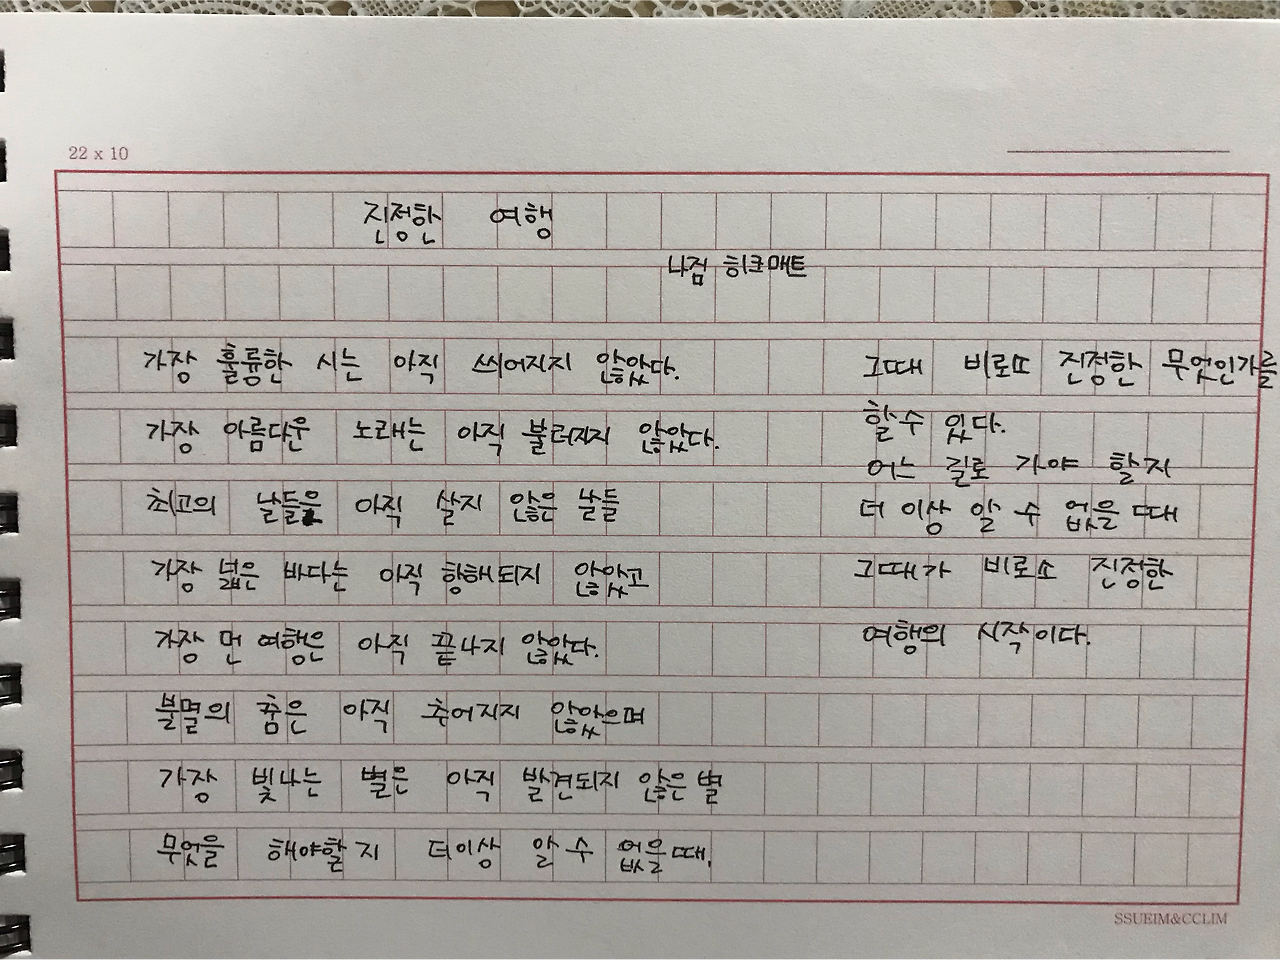 22 x 10
진정한 여행
나짐 히크메트
가장 훌륭한 시는 아직 씌어지지 않았다.
가장 아름다운 노래는 아직 불러지지 않았다.
최고의 날들은 아직 살지 않은 날들
가장 넓은 바다는 아직 항해되지 않았고
가장 먼 여행은 아직 끝나지 않았다.
불멸의 춤은 아직 추어지지 않았으며
가장 빛나는 별은 아직 발견되지 않은 별
무엇을 해야할지 더이상 알 수 없을때,
그때 비로또 진정한 무엇인가를
할수 있다.
어느 길로 가야 할지
더 이상 알 수 없을 때
그때가 비로소 진정한
여행의 시작이다.
SSUEIM&CCLIM